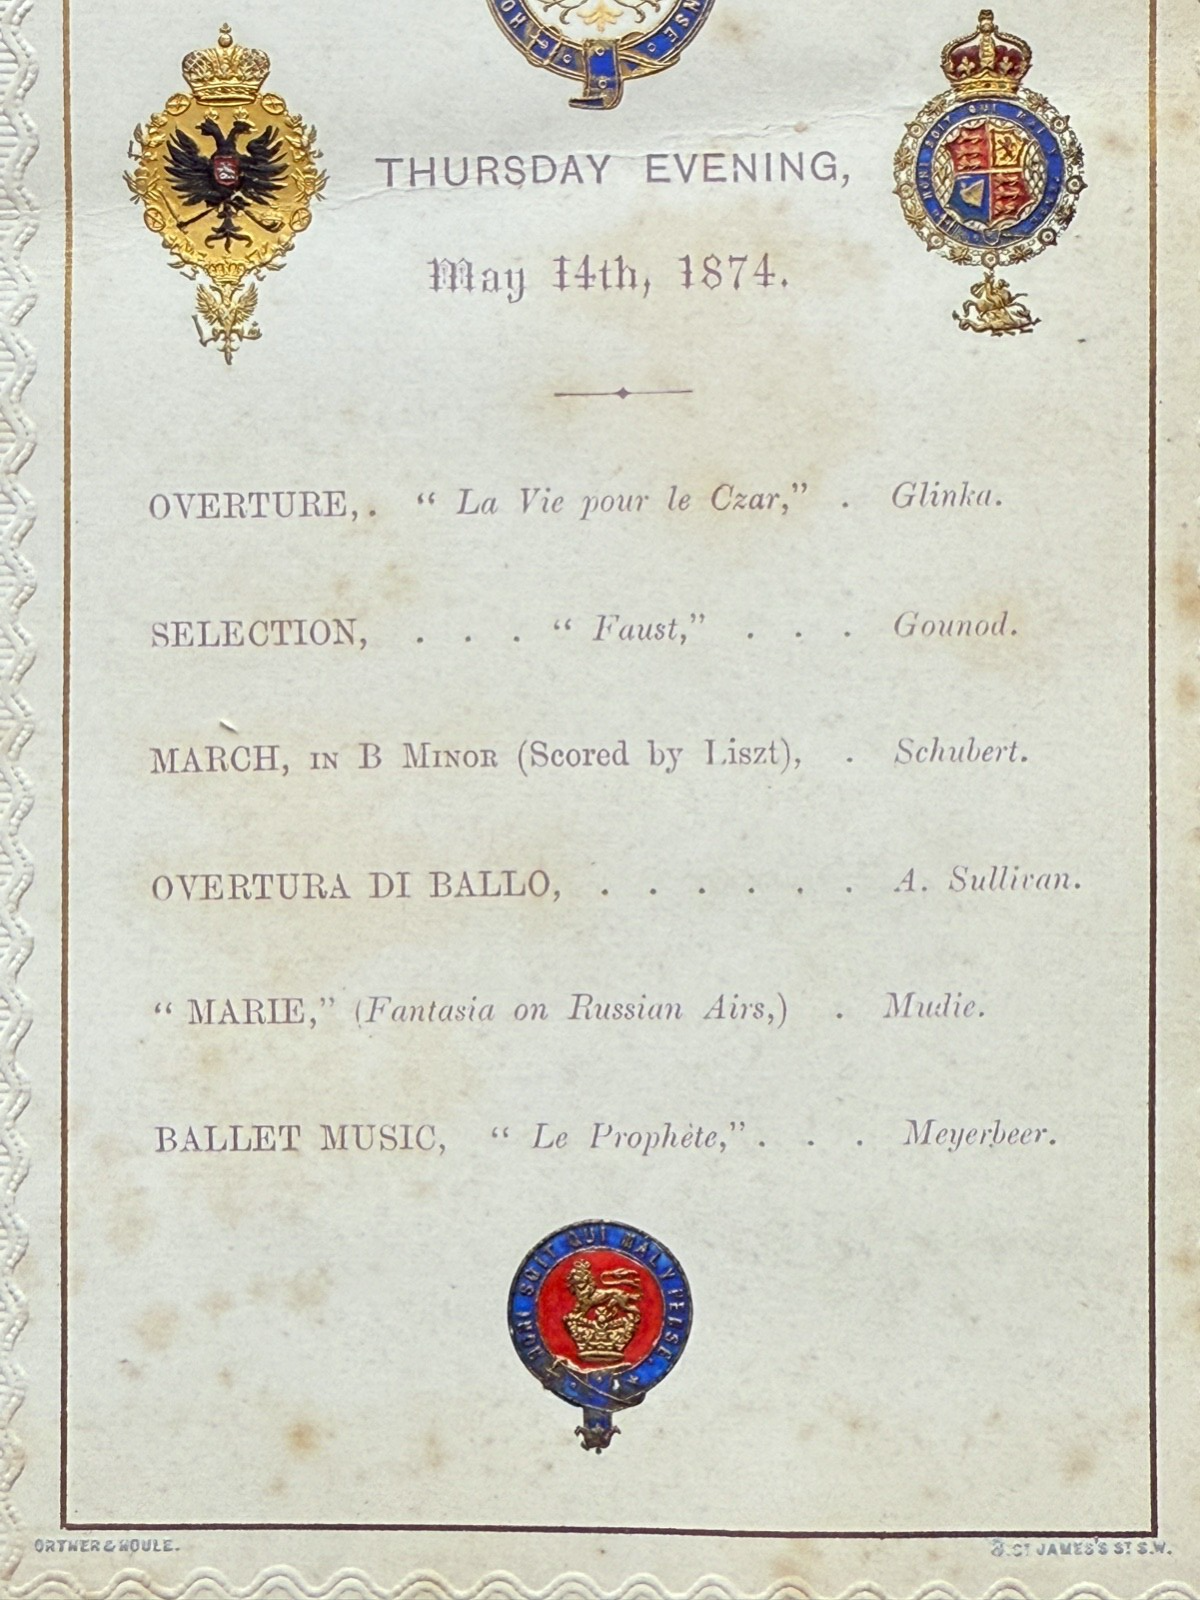 HO NSE
HONI SOIT QUI MAL Y PENSE
THURSDAY EVENING,
May 14th, 1874.
OVERTURE,. “ La Vie pour le Czar,” . Glinka.
SELECTION, . . . “ Faust,” . . . Gounod.
MARCH, IN B MINOR (Scored by Liszt), . Schubert.
OVERTURA DI BALLO, . . . . . . A. Sullivan.
“ MARIE,” (Fantasia on Russian Airs,) . Mudie.
BALLET MUSIC, “ Le Prophète,”. . . Meyerbeer.
HONI SOIT QUI MAL Y PENSE.
ORTNER & HOULE.
3. ST JAMES'S ST S.W.